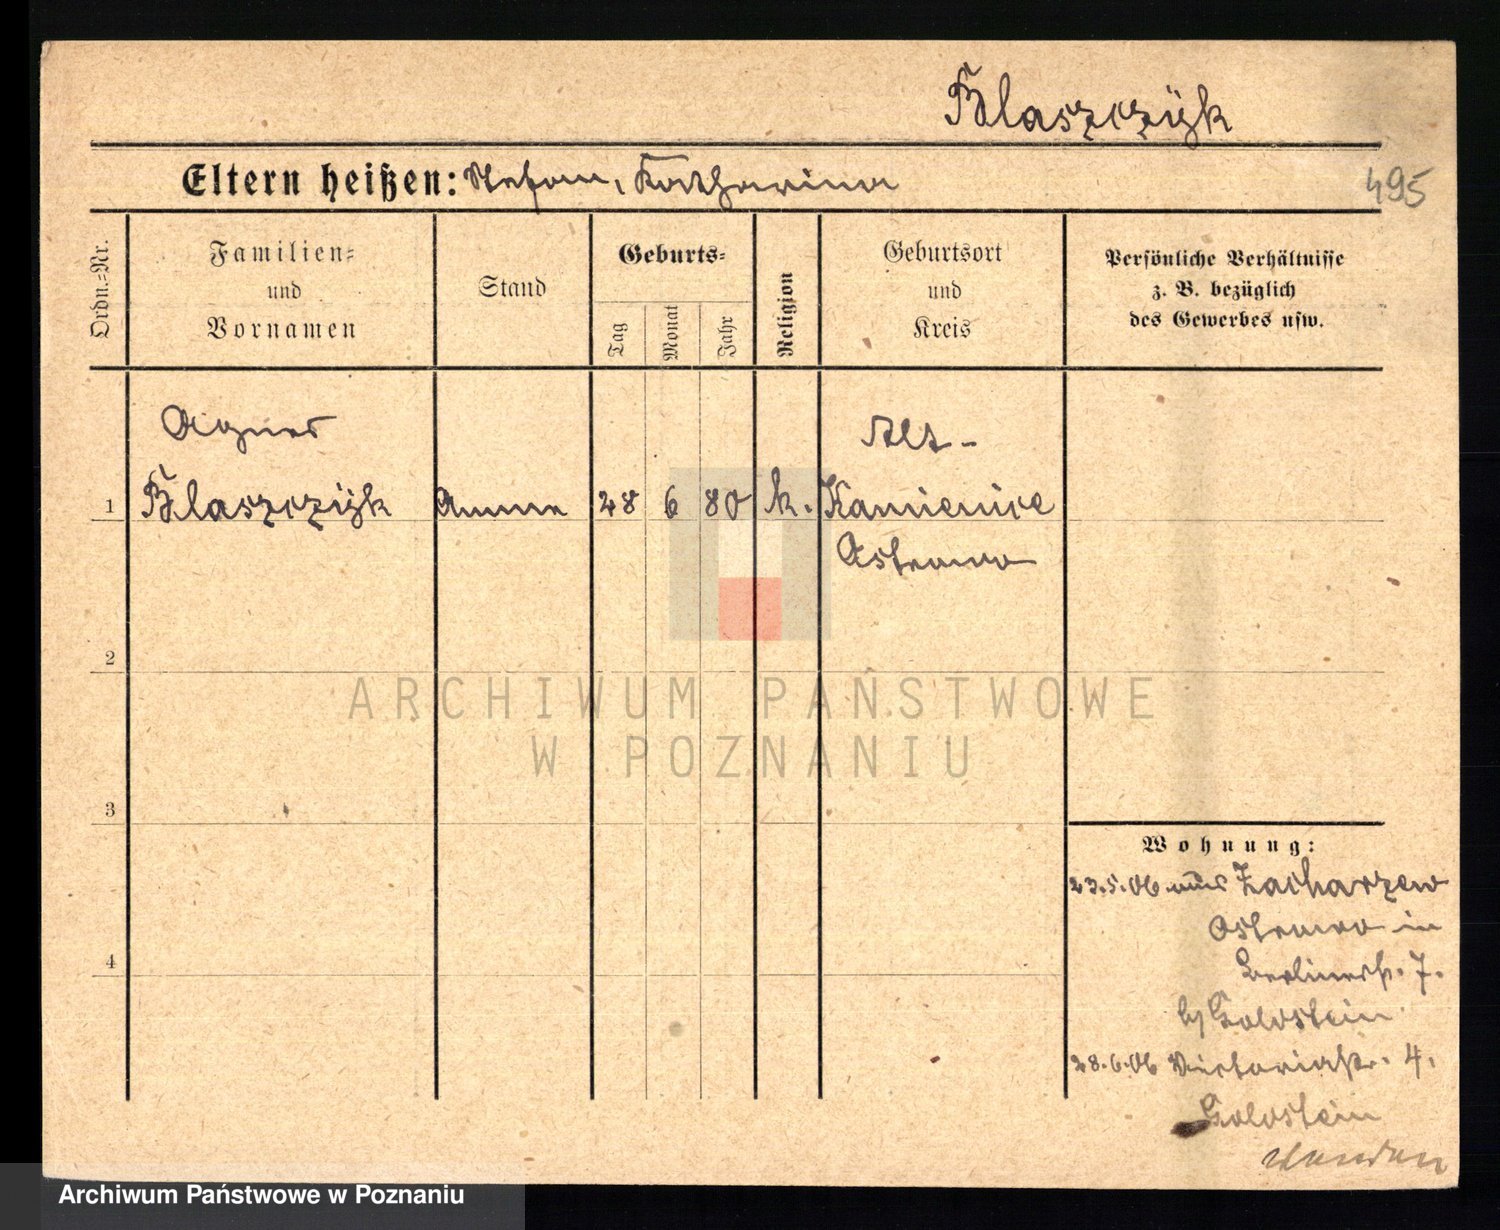 Blaszczÿk
Eltern heißen: Stefan, Katharina
495
Ordn.-Nr.
Familien-
und
Vornamen
Stand
Geburts-
Tag
Monat
Jahr
Religion
Geburtsort
und
Kreis
Persönliche Verhältnisse
z. B. bezüglich
des Gewerbes usw.
Agnes
Alt-
1 Blaszczÿk Amme 28 6 80 k. Kamienice
Ostrowo
2
ARCHIWUM PAŃSTWOWE
W POZNANIU
3
Wohnung:
23.5.06 aus Zacharzew
Ostrowo in
4
Berlinerstr. 7.
b/ Goldstein
28.6.06 Victoriastr. 4.
Goldstein
Archiwum Państwowe w Poznaniu